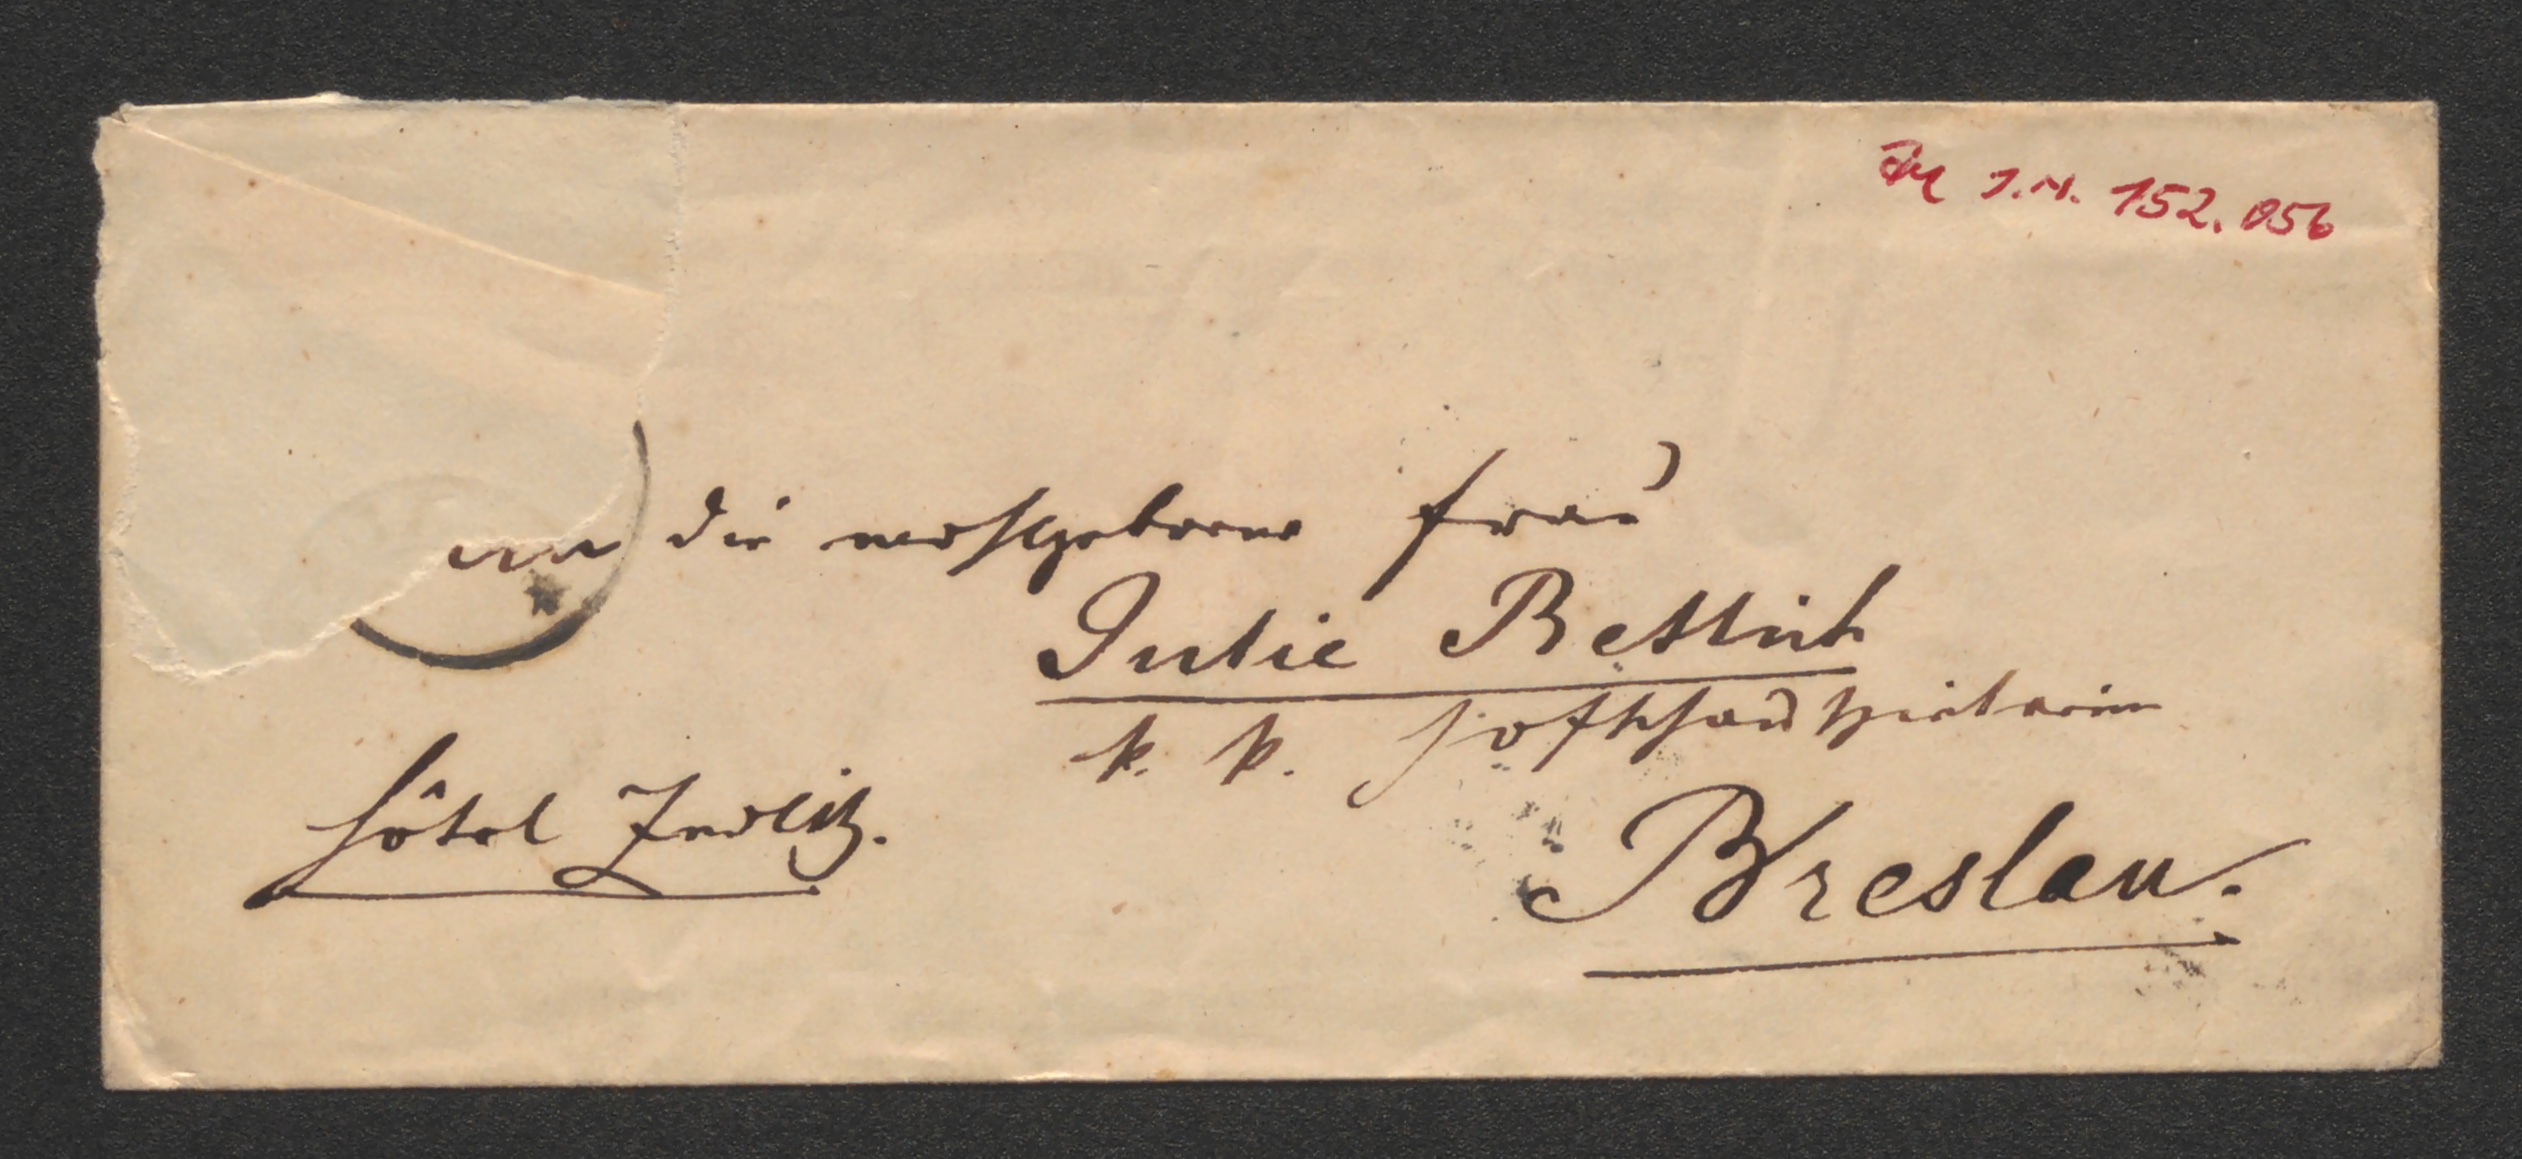 I.N. 152.056
An die wohlgeborne Frau
Julie Rettich
k. k. Hofschauspielerin
Hôtel Zedlitz.
Breslau.